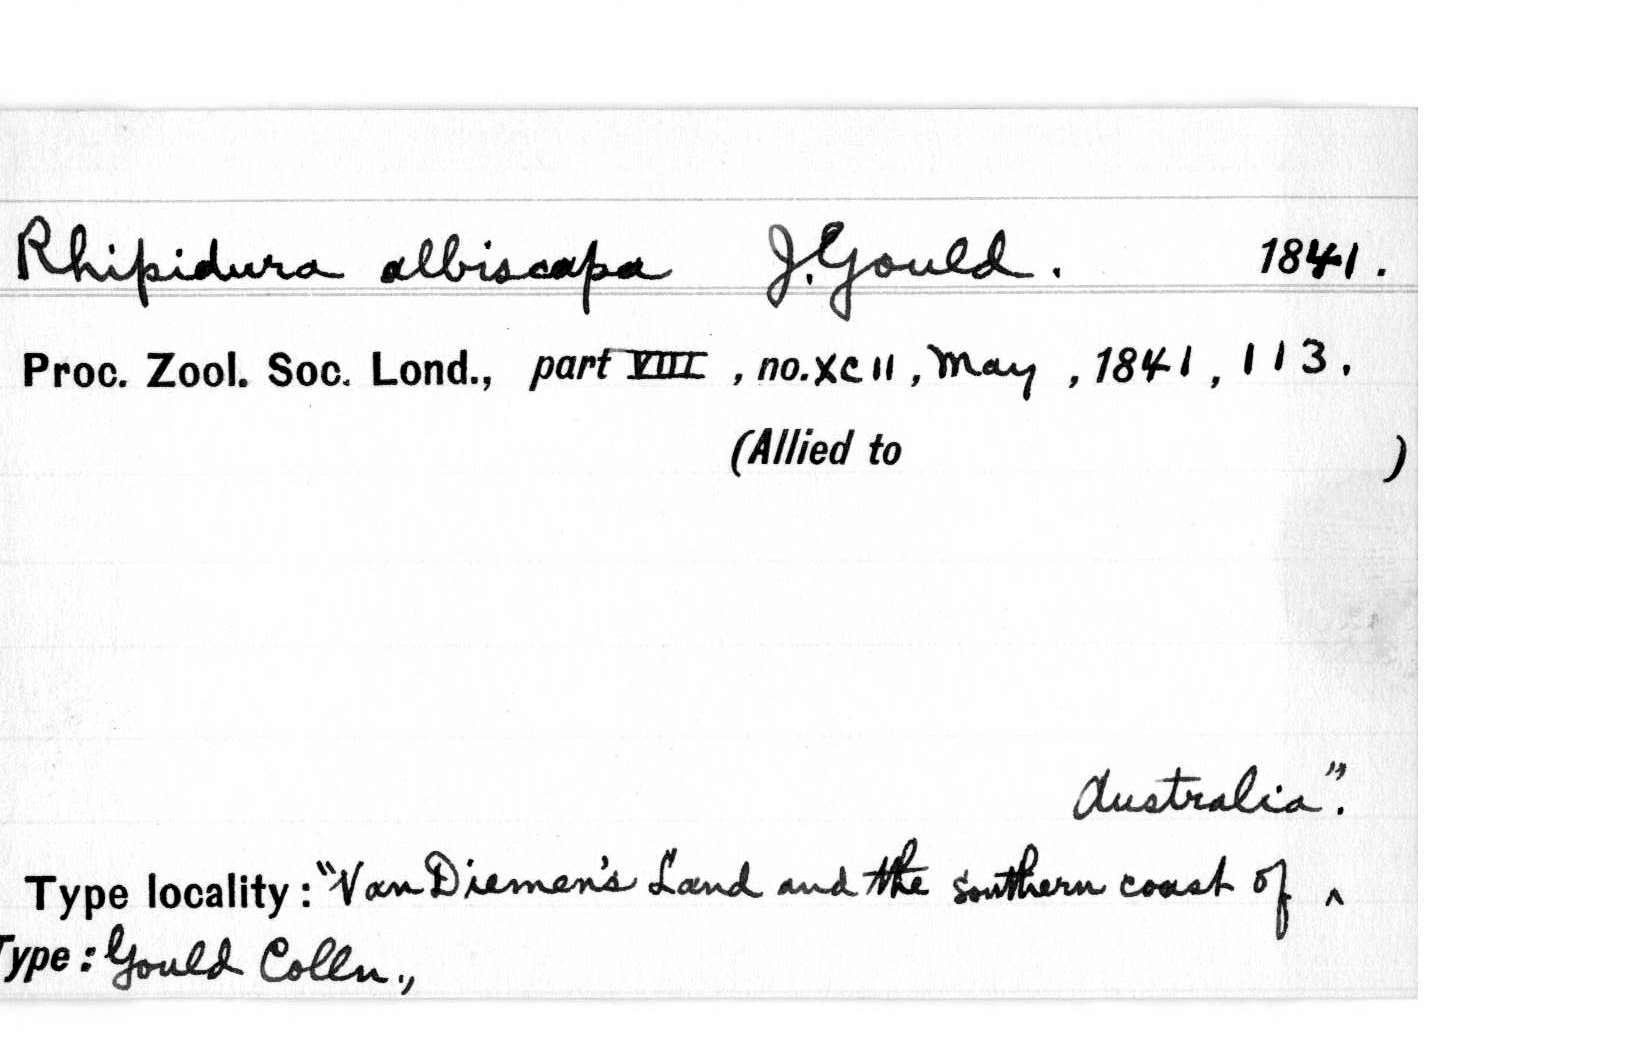 Rhipidura albiscapa J. Gould. 1841.
Proc. Zool. Soc. Lond., part VIII, no. XCII, May, 1841, 113.
(Allied to )
Australia".
Type locality: "Van Diemen's Land and the southern coast of ^
Type: Gould Colln.,